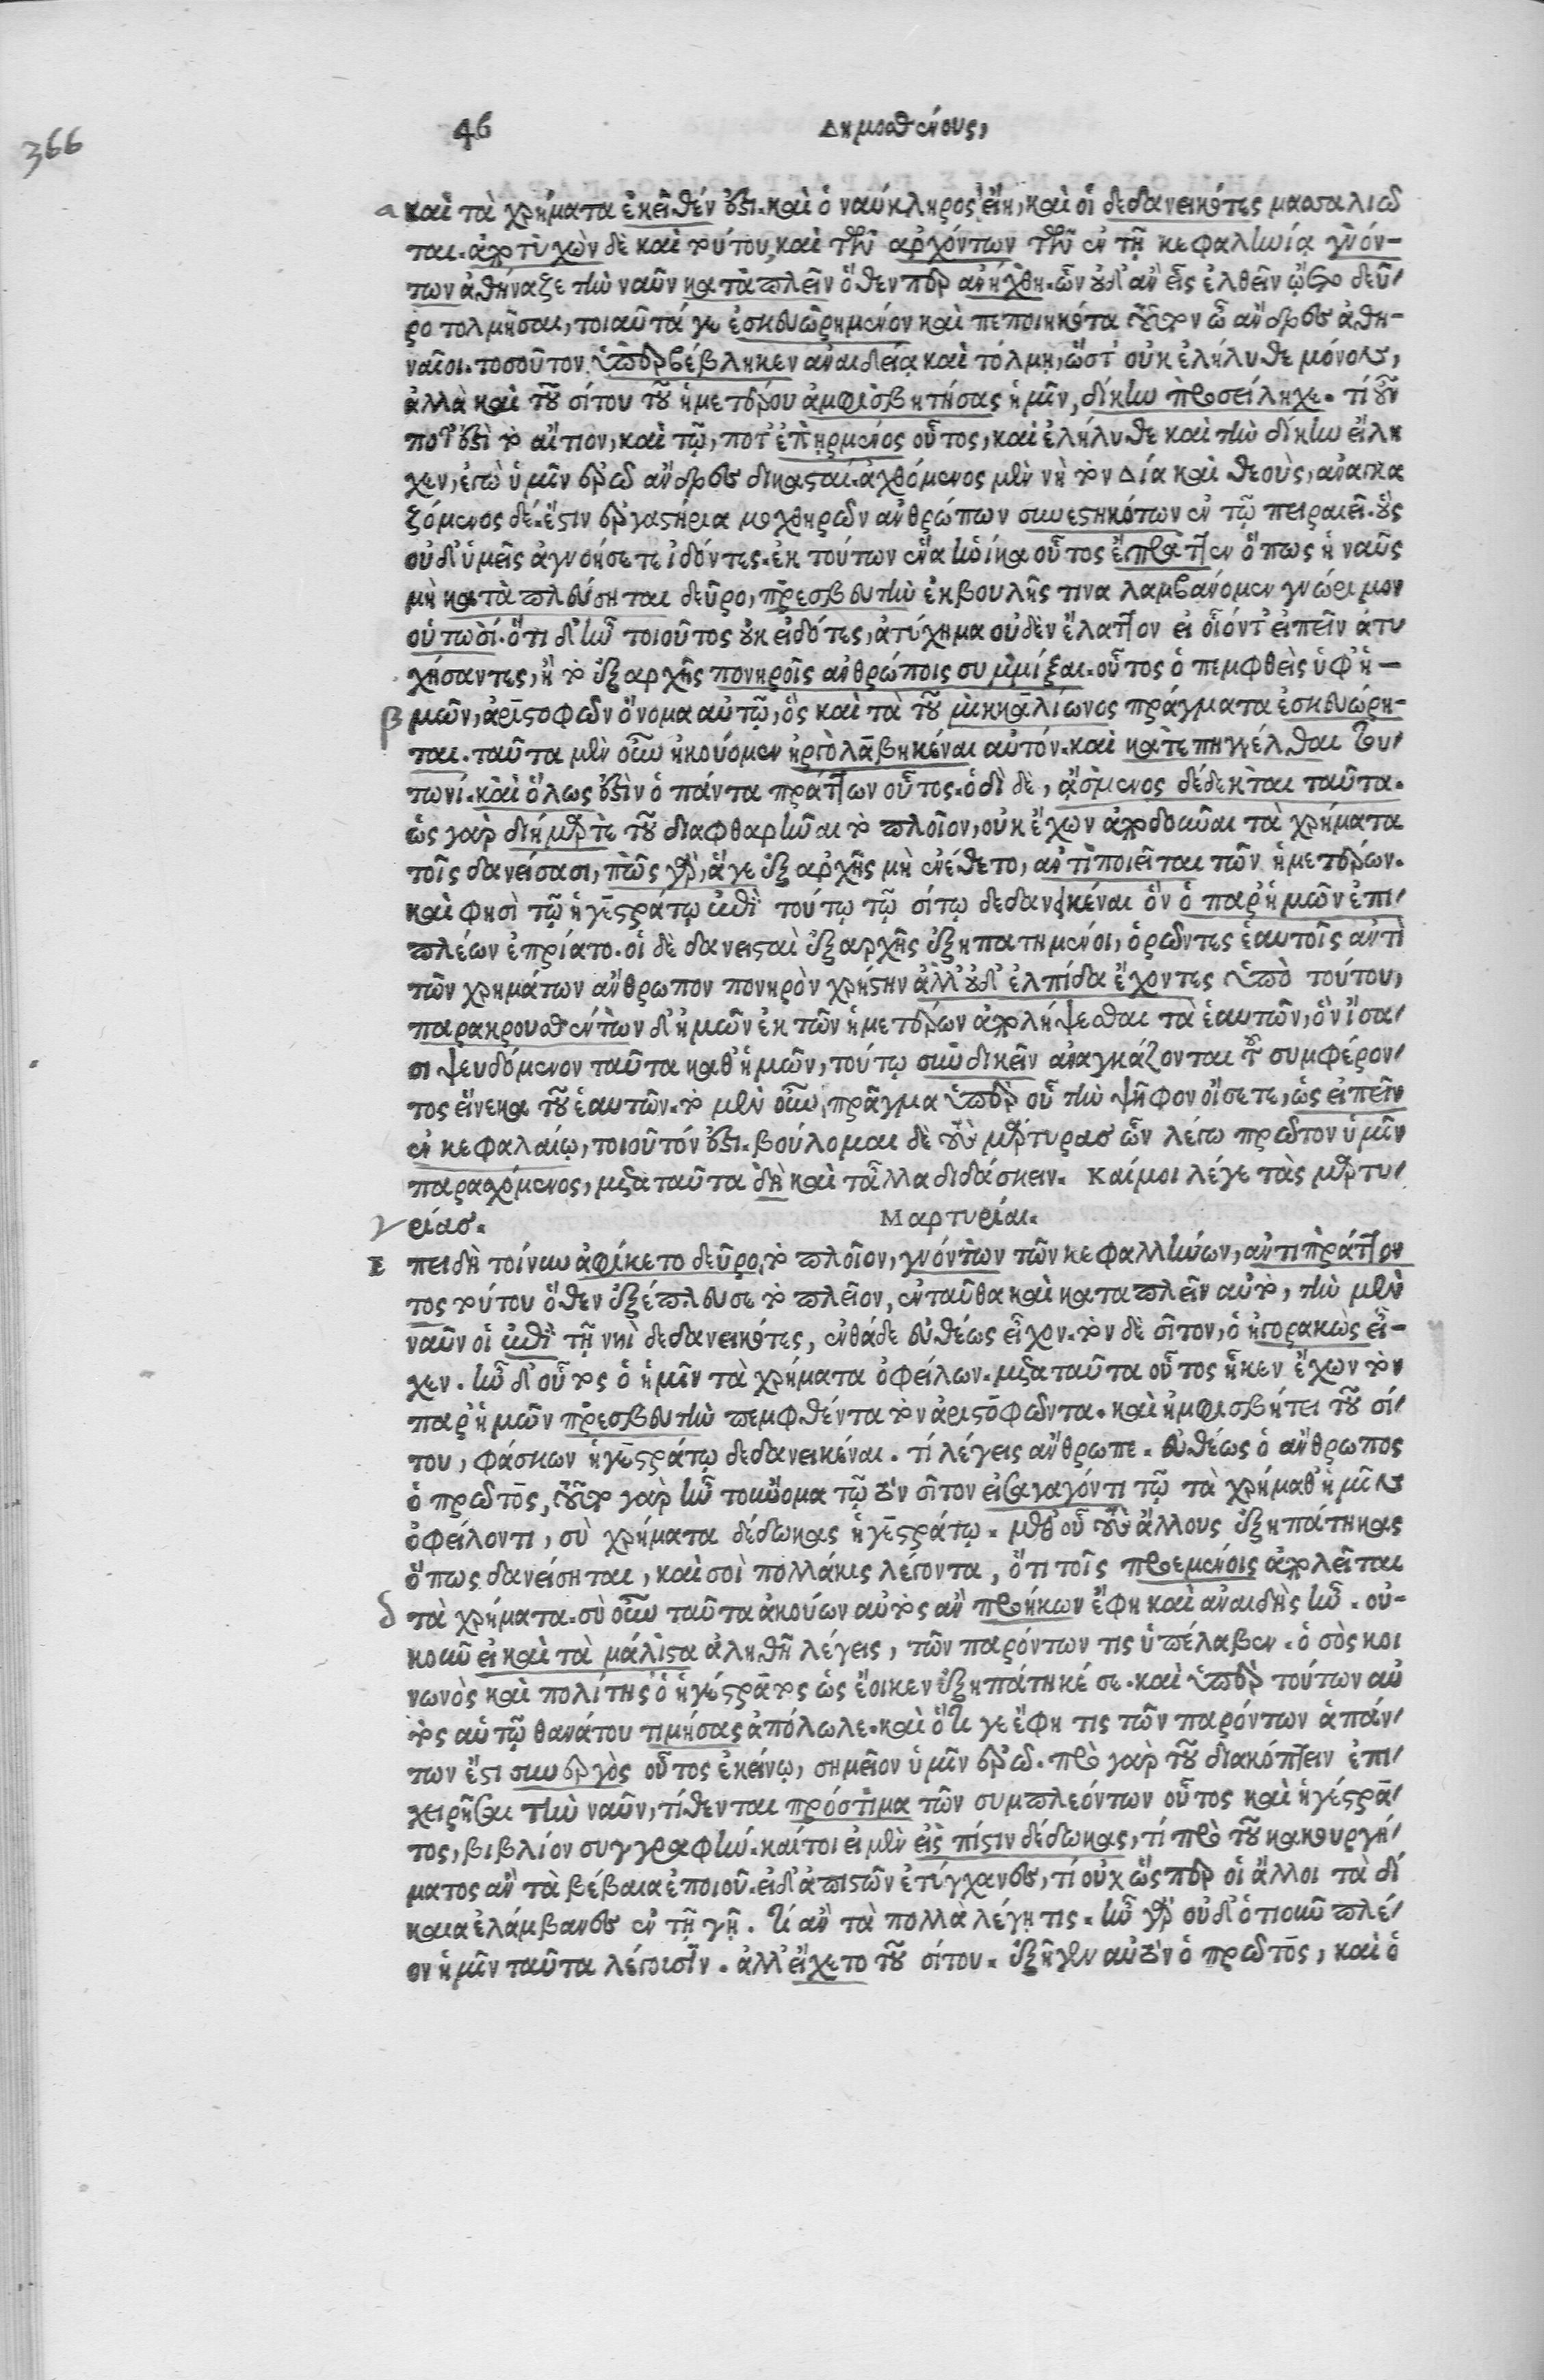 366
46
Δημοσθένους,
α
καὶ τὰ χρήματα ἐκεῖθέν ἐστι. καὶ ὁ ναύκληρος εἴη, καὶ οἱ δεδανεικότες μασσαλιῶ
ται. ἀποτυχὼν δὲ καὶ τούτου, καὶ τῶν ἀρχόντων τῶν ἐν τῇ κεφαλληνίᾳ γνόν-
των ἀθήναζε τὴν ναῦν καταπλεῖν ὅθενπερ ἀνήχθη. ὧν οὐδ' ἂν εἷς ἐλθεῖν ᾤετο δεῦ/
ρο τολμῆσαι, τοιαῦτά γε ἐσκευωρημένον καὶ πεποιηκότα οὗτος ὦ ἄνδρες ἀθη-
ναῖοι. τοσοῦτον ὑπερβέβληκεν ἀναιδείᾳ καὶ τόλμῃ, ὥστ' οὐκ ἐλήλυθε μόνον,
ἀλλὰ καὶ τοῦ σίτου τοῦ ἡμετέρου ἀμφισβητήσας ἡμῖν, δίκην προσείληχε. τί οὖν
ποτ' ἐστὶ τὸ αἴτιον, καὶ τῷ, ποτ' ἐπηρμένος οὗτος, καὶ ἐλήλυθε καὶ τὴν δίκην εἴλη
χεν, ἐγὼ ὑμῖν ἐρῶ ἄνδρες δικασταί. ἀχθόμενος μὲν νὴ τὸν Δία καὶ θεοὺς, ἀναγκα
ζόμενος δέ. ἔστιν ἐργαστήρια μοχθηρῶν ἀνθρώπων συνεστηκότων ἐν τῷ πειραιεῖ. οὓς
οὐδ' ὑμεῖς ἀγνοήσετε ἰδόντες. ἐκ τούτων ἕνα ἡνίκα οὗτος ἔπραττεν ὅπως ἡ ναῦς
μὴ καταπλεύσηται δεῦρο, πρεσβευτὴν ἐκβουλῆς τινα λαμβάνομεν γνώριμον
οὑτωσί. ὅτι δ' ἦν τοιοῦτος οὐκ εἰδότες, ἀτύχημα οὐδὲν ἔλαττον εἰ οἷόντ' εἰπεῖν ἀτυ
χήσαντες, ἢ τὸ ἐξαρχῆς πονηροῖς ἀνθρώποις συμμίξαι. οὗτος ὁ πεμφθεὶς ὑφ' ἡ-
β
μῶν, ἀριστοφῶν ὄνομα αὐτῷ, ὃς καὶ τὰ τοῦ μικκαλίωνος πράγματα ἐσκευώρη-
ται. ταῦτα μὲν οὖν ἠκούομεν ἠργολαβηκέναι αὐτόν. καὶ κατεπηγγέλθαι του/
τωνί. καὶ ὅλως ἐστὶν ὁ πάντα πράττων οὗτος. ὁδὶ δὲ, ᾄσμενος δέδεκται ταῦτα.
ὡς γὰρ διήμαρτε τοῦ διαφθαρῆναι τὸ πλοῖον, οὐκ ἔχων ἀποδοῦναι τὰ χρήματα
τοῖς δανείσασι, πῶς γὰρ, ἅγε ἐξαρχῆς μὴ ἐνέθετο, ἀντιποιεῖται τῶν ἡμετέρων.
καὶ φησὶ τῷ ἡγεστράτῳ ἐπὶ τούτῳ τῷ σίτῳ δεδανεικέναι ὃν ὁ παρ' ἡμῶν ἐπι/
πλέων ἐπρίατο. οἱ δὲ δανεισταὶ ἐξαρχῆς ἐξηπατημένοι, ὁρῶντες ἑαυτοῖς ἀντὶ
τῶν χρημάτων ἄνθρωπον πονηρὸν χρήστην ἀλλ' οὐδ' ἐλπίδα ἔχοντες ὑπὸ τούτου,
παρακρουσθέντων δ' ἡμῶν ἐκ τῶν ἡμετέρων ἀπολήψεσθαι τὰ ἑαυτῶν, ὃν ἴσα/
σι ψευδόμενον ταῦτα καθ' ἡμῶν, τούτῳ συνδικεῖν ἀναγκάζονται τοῦ συμφέρον/
τος εἵνεκα τοῦ ἑαυτῶν. τὸ μὲν οὖν πρᾶγμα ὑπὲρ οὗ τὴν ψῆφον οἴσετε, ὡς εἰπεῖν
ἐν κεφαλαίῳ, τοιοῦτόν ἐστι. βούλομαι δὲ τοὺς μάρτυρας ὧν λέγω πρῶτον ὑμῖν
παρασχόμενος, μετὰ ταῦτα δὴ καὶ τἆλλα διδάσκειν. Καίμοι λέγε τὰς μαρτυ/
γ
ρίας. Μαρτυρίαι.
Ε πειδὴ τοίνυν ἀφίκετο δεῦρο τὸ πλοῖον, γνόντων τῶν κεφαλλήνων, ἀντιπράττον
τος τούτου ὅθεν ἐξέπλευσε τὸ πλεῖον, ἐνταῦθα καὶ καταπλεῖν αὐτὸ, τὴν μὲν
ναῦν οἱ ἐπὶ τῇ νηὶ δεδανεικότες, ἐνθάδε εὐθέως εἶχον. τὸν δὲ σῖτον, ὁ ἠγορακὼς εἶ-
χεν. ἦν δ' οὗτος ὁ ἡμῖν τὰ χρήματα ὀφείλων. μετὰ ταῦτα οὗτος ἧκεν ἔχων τὸν
παρ' ἡμῶν πρεσβευτὴν πεμφθέντα τὸν ἀριστοφῶντα. καὶ ἠμφισβήτει τοῦ σί/
του, φάσκων ἡγεστράτῳ δεδανεικέναι. τί λέγεις ἄνθρωπε. εὐθέως ὁ ἄνθρωπος
ὁ πρῶτος, τοῦτο γὰρ ἦν τοὔνομα τῷ τὸν σῖτον εἰσαγαγόντι τῷ τὰ χρήμαθ' ἡμῖν
ὀφείλοντι, σὺ χρήματα δέδωκας ἡγεστράτῳ. μεθ' οὗ τοὺς ἄλλους ἐξηπάτηκας
ὅπως δανείσηται, καὶ σοὶ πολλάκις λέγοντα, ὅτι τοῖς προεμένοις ἀπολεῖται
δ
τὰ χρήματα. σὺ οὖν ταῦτα ἀκούων αὐτὸς ἂν προήκων ἔφη καὶ ἀναιδὴς ἦν. οὐ-
κοῦν εἰ καὶ τὰ μάλιστα ἀληθῆ λέγεις, τῶν παρόντων τις ὑπέλαβεν. ὁ σὸς κοι
νωνὸς καὶ πολίτης ὁ ἡγέστρατος ὡς ἔοικεν ἐξηπάτηκέ σε. καὶ ὑπὲρ τούτων αὐ
τὸς αὑτῷ θανάτου τιμήσας ἀπόλωλε. καὶ ὅτι γε ἔφη τις τῶν παρόντων ἁπάν/
των ἐστὶ συνεργὸς οὗτος ἐκείνῳ, σημεῖον ὑμῖν ἐρῶ. πρὸ γὰρ τοῦ διακόπτειν ἐπι/
χειρῆσαι τὴν ναῦν, τίθενται πρόστιμα τῶν συμπλεόντων οὗτος καὶ ἡγέστρα/
τος, βιβλίον συγγραφήν. καίτοι εἰ μὲν εἰς πίστιν δέδωκας, τί πρὸ τοῦ κακουργή/
ματος ἂν τὰ βέβαια ἐποιοῦ. εἰ δ' ἀπιστῶν ἐτύγχανες, τί οὐχ ὥσπερ οἱ ἄλλοι τὰ δί
καια ἐλάμβανες ἐν τῇ γῇ. τί ἂν τὰ πολλὰ λέγῃ τις. ἦν γὰρ οὐδ' ὁτιοῦν πλέ/
ον ἡμῖν ταῦτα λέγουσιν. ἀλλ' εἴχετο τοῦ σίτου. ἐξῆγεν αὐτὸν ὁ πρῶτος, καὶ ὁ